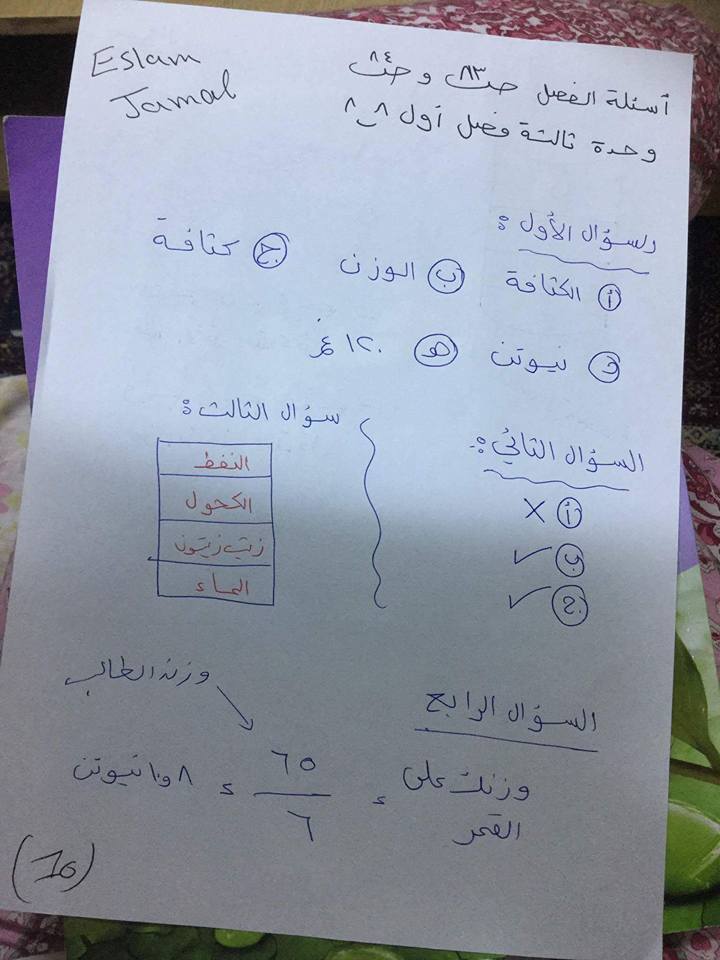 Eslam
Jamal
أسئلة الفصل ص٨٣ و ص٨٤
وحدة ثالثة فصل أول ^_^
السؤال الأول :
أ الكثافة ب الوزن ج كثافة
د نيوتن هـ ١٢٠ غم
السؤال الثاني :
أ ×
ب ✓
ج ✓
سؤال الثالث :
النفط
الكحول
زيت زيتون
الماء
السؤال الرابع
وزن الطالب
وزنك على القمر = ٦٥ / ٦ = ١٠٫٨ نيوتن